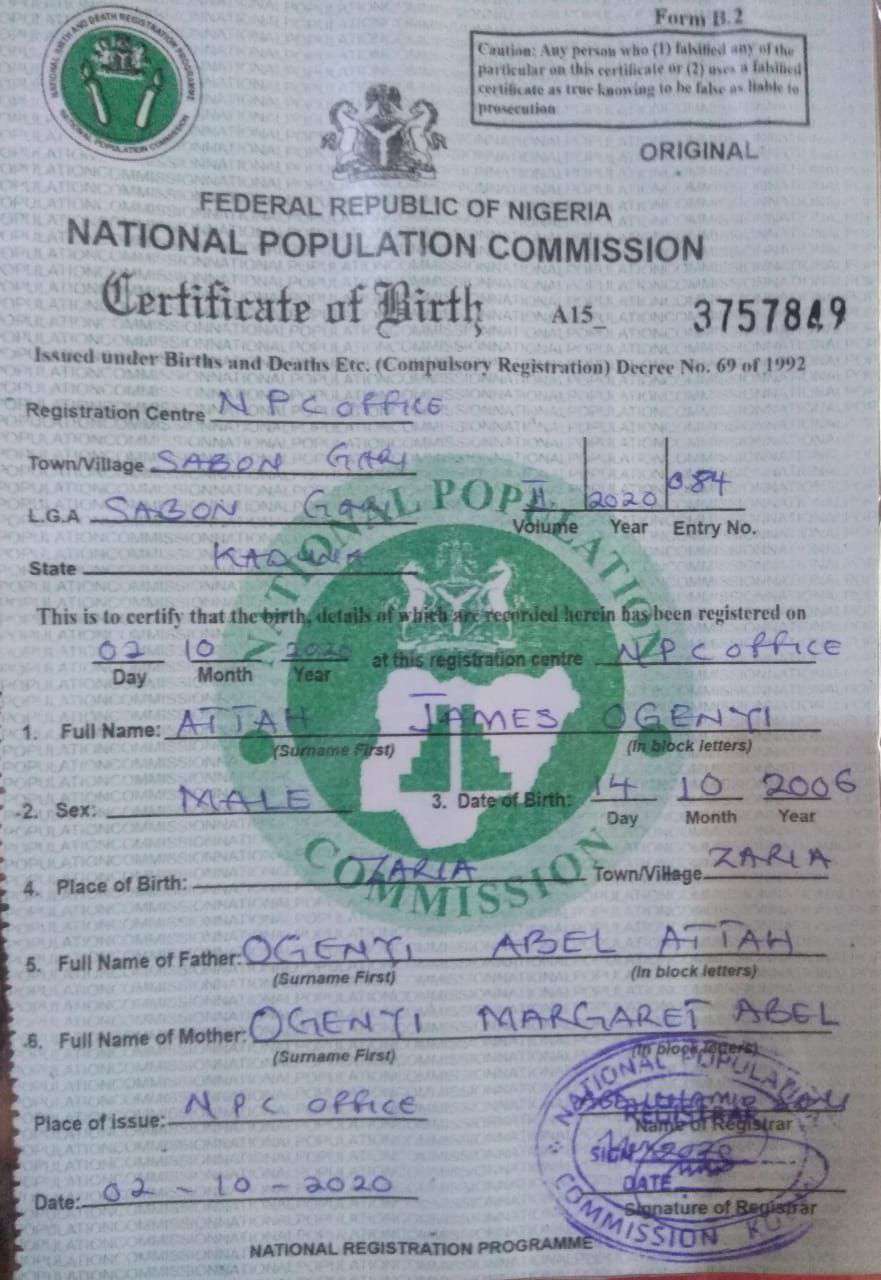 Form B.2
NATIONAL BIRTH AND DEATH REGISTRATION PROGRAMME
NATIONAL POPULATION COMMISSION
Caution: Any person who (1) falsified any of the
particular on this certificate or (2) uses a falsified
certificate as true knowing to be false as liable to
prosecution
ORIGINAL
FEDERAL REPUBLIC OF NIGERIA
NATIONAL POPULATION COMMISSION
Certificate of Birth A15_ 3757849
Issued under Births and Deaths Etc. (Compulsory Registration) Decree No. 69 of 1992
Registration Centre NPC OFFICE
Town/Village SABON GARI
L.G.A SABON GARI
II 2020 084
Volume Year Entry No.
State KADUNA
This is to certify that the birth, details of which are recorded herein has been registered on
02 10 2020 at this registration centre NPC OFFICE
Day Month Year
1. Full Name: ATTAH JAMES OGENYI
(Surname First) (In block letters)
2. Sex: MALE 3. Date of Birth: 14 10 2006
Day Month Year
4. Place of Birth: ZARIA Town/Village ZARIA
NATIONAL POPULATION COMMISSION
5. Full Name of Father: OGENYI ABEL ATTAH
(Surname First) (In block letters)
6. Full Name of Mother: OGENYI MARGARET ABEL
(Surname First) (In block letters)
Place of issue: NPC OFFICE
NATIONAL POPULATION
REGISTRAR
Name of Registrar
SIGN
DATE
Date: 02-10-2020
Signature of Registrar
COMMISSION
NATIONAL REGISTRATION PROGRAMME